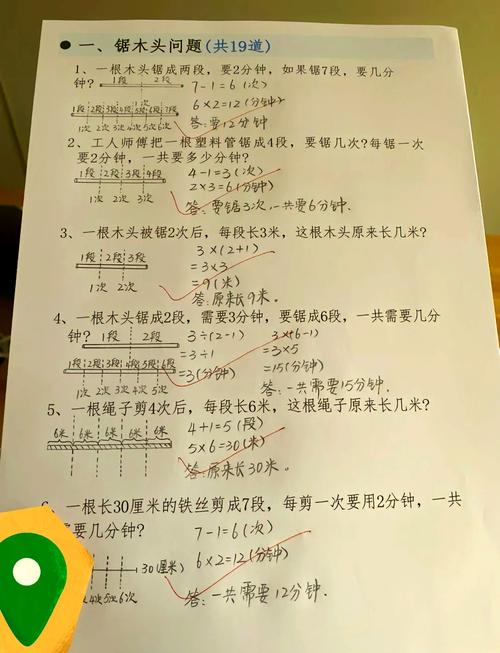 一、锯木头问题(共19道)
1、一根木头锯成两段，要2分钟，如果锯7段，要几分
钟?
1段 2段
7-1=6(次)
1次
1段 2段 3段 4段 5段 6段 7段
6×2=12(分钟)
1次 2次 3次 4次 5次 6次
答:要12分钟
2、工人师傅把一根塑料管锯成4段，要锯几次?每锯一次
要2分钟，一共要多少分钟?
1段 2段 3段 4段
4-1=3(次)
2×3=6(分钟)
1次 2次 3次
答:要锯3次,一共要6分钟.
3、一根木头被锯2次后，每段长3米，这根木头原来长几米?
3×(2+1)
1段 2段 3段
=3×3
=9(米)
1次 2次
答:原来长9米.
4、一根木头锯成2段，需要3分钟，要锯成6段，一共需要几分
钟?
1段 2段
3÷(2-1) 3×(6-1)
=3÷1 =3×5
1段 2段 3段 4段 5段 6段
=3(分钟) =15(分钟)
1次 2次 3次 4次 5次
答:一共需要15分钟.
5、一根绳子剪4次后，每段长6米，这根绳子原来长几米?
4+1=5(段)
6米 6米 6米 6米 6米
5×6=30(米)
答:原来长30米。
一根长30厘米的铁丝剪成7段，每剪一次要用2分钟，一共
需要几分钟?
7-1=6(次)
30(厘米)
6×2=12(分钟)
4次 5次 6次
答:一共需要12分钟.